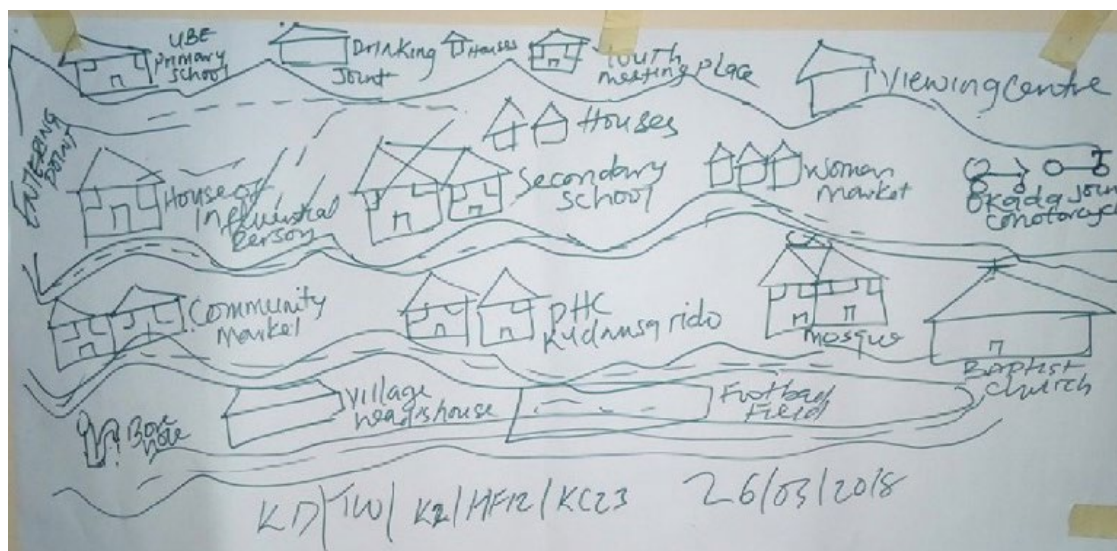 UBE
Primary
School
Drinking
Joint
Houses
Youth
meeting place
Viewing Centre
ENTERING
POINT
House of
Influential
Person
Houses
Secondary
School
Woman
market
Okada Joint
Community
Market
PHC
Kudansa rido
mosque
Baptist
Church
Bore
hole
Village
head's house
Football
Field
KD/TW/K2/HF12/KC23
26/03/2018